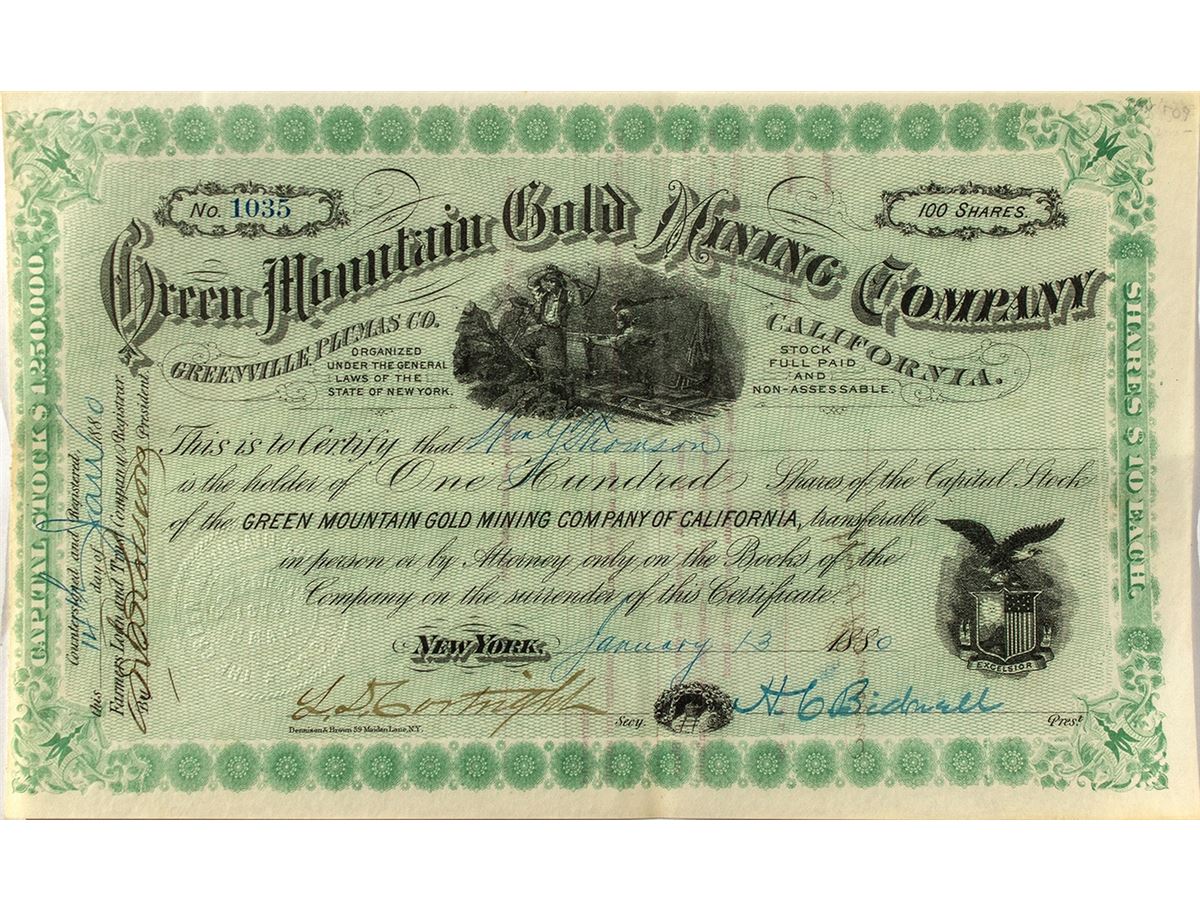 No. 1035
100 SHARES.
Green Mountain Gold Mining Company
GREENVILLE, PLUMAS CO.
CALIFORNIA.
ORGANIZED
UNDER THE GENERAL
LAWS OF THE
STATE OF NEW YORK.
STOCK
FULL PAID
AND
NON-ASSESSABLE.
This is to Certify that Wm Y Thomson
is the holder of One Hundred Shares of the Capital Stock
of the GREEN MOUNTAIN GOLD MINING COMPANY OF CALIFORNIA, transferable
in person or by Attorney only on the Books of the
Company on the surrender of this Certificate.
NEW YORK. January 13 1880
Secy.
H C Bidwell Prest
Dennison & Brown 59 Maiden Lane, N.Y.
EXCELSIOR
CAPITAL STOCK $ 1,250,000.
SHARES $ 10 EACH.
Countersigned and Registered,
this 14th day of Jany 1880
Farmers Loan and Trust Company, Registrar.
President